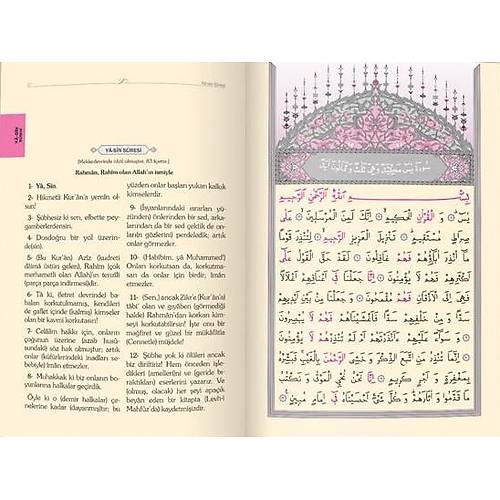 Yâ-Sîn Sûresi
YÂ-SÎN SÛRESİ
(Mekke devrinde nâzil olmuştur. 83 âyettir.)
Rahmân, Rahîm olan Allah'ın ismiyle
1- Yâ, Sîn.
2- Hikmetli Kur'ân'a yemin olsun!
3- Şübhesiz ki sen, elbette peygamberlerdensin.
4- Dosdoğru bir yol üzerinde(sin).
5- (Bu Kur'ân) Azîz (kudreti
dâimâ üstün gelen), Rahîm (çok
merhametli olan Allah)'ın tenzîli
(parça parça indirmesi)dir.
6- Tâ ki, (fetret devrinde) babaları
korkutulmamış, kendileri
de gaflet içinde (kalmış) kimseler
olan bir kavmi korkutasın.
7- Celâlim hakkı için, onların
çoğunun üzerine (azab husûsundaki)
söz hak olmuştur; artık
onlar (küfürlerindeki inadları sebebiyle)
îmân etmezler.
8- Muhakkak ki biz onların boyunlarına
halkalar geçirdik.
Öyle ki o (demir halkalar) çenelerine
kadar (dayanmış)tır; bu
yüzden onlar başları yukarı kalkık
kimselerdir.
9- (İsyanlarındaki ısrarları yüzünden)
önlerinden bir sed, arkalarından
da bir sed çektik de onların
gözlerini perdeledik; artık
onlar görmezler.
10- (Habîbim, yâ Muhammed!)
Onları korkutsan da, korkutmasan
da onlar için birdir, îmân
etmezler.
11- (Sen,) ancak Zikr'e (Kur'ân'a)
tâbi' olan ve gıyâben (görmediği
hâlde) Rahmân'dan korkan kimseyi
korkutabilirsin! İşte onu bir
mağfiret ve güzel bir mükâfâtla
(Cennetle) müjdele!
12- Şübhe yok ki ölüleri ancak
biz diriltiriz! Hem önceden işledikleri
(amelleri)ni ve (geride bıraktıkları)
eserlerini yazarız. Ve
olmuş, olacak herşeyi apaçık
beyân eden bir kitapta (Levh-i
Mahfûz'da) kaydetmişizdir.
بِسْمِ اللّٰهِ الرَّحْمٰنِ الرَّحِيمِ
يٰسٓ ۞ وَالْقُرْاٰنِ الْحَكِيمِ ۞ اِنَّكَ لَمِنَ الْمُرْسَلِينَ ۞ عَلٰى
صِرَاطٍ مُسْتَقِيمٍ ۞ تَنْزِيلَ الْعَزِيزِ الرَّحِيمِ ۞ لِتُنْذِرَ قَوْمًا مَٓا
اُنْذِرَ اٰبَٓاؤُهُمْ فَهُمْ غَافِلُونَ ۞ لَقَدْ حَقَّ الْقَوْلُ عَلٰٓى
اَكْثَرِهِمْ فَهُمْ لَا يُؤْمِنُونَ ۞ اِنَّا جَعَلْنَا فِٓى اَعْنَاقِهِمْ
اَغْلَالًا فَهِىَ اِلَى الْاَذْقَانِ فَهُمْ مُقْمَحُونَ ۞ وَجَعَلْنَا مِنْ بَيْنِ
اَيْدِيهِمْ سَدًّا وَمِنْ خَلْفِهِمْ سَدًّا فَاَغْشَيْنَاهُمْ فَهُمْ لَا يُبْصِرُونَ
۞ وَسَوَٓاءٌ عَلَيْهِمْ ءَاَنْذَرْتَهُمْ اَمْ لَمْ تُنْذِرْهُمْ لَا يُؤْمِنُونَ
۞ اِنَّمَا تُنْذِرُ مَنِ اتَّبَعَ الذِّكْرَ وَخَشِىَ الرَّحْمٰنَ بِالْغَيْبِ فَبَشِّرْهُ
بِمَغْفِرَةٍ وَاَجْرٍ كَرِيمٍ ۞ اِنَّا نَحْنُ نُحْيِى الْمَوْتٰى وَنَكْتُبُ
مَا قَدَّمُوا وَاٰثَارَهُمْ وَكُلَّ شَىْءٍ اَحْصَيْنَاهُ فِٓى اِمَامٍ مُبِينٍ ۞